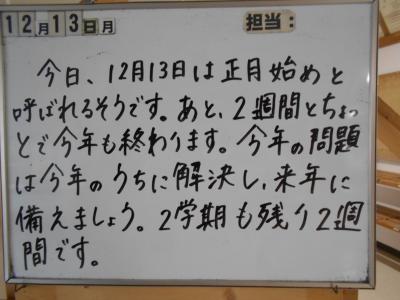 12月13日月 担当：
今日、12月13日は正月始めと
呼ばれるそうです。あと、2週間とちょっ
とで今年も終わります。今年の問題
は今年のうちに解決し、来年に
備えましょう。2学期も残り2週
間です。